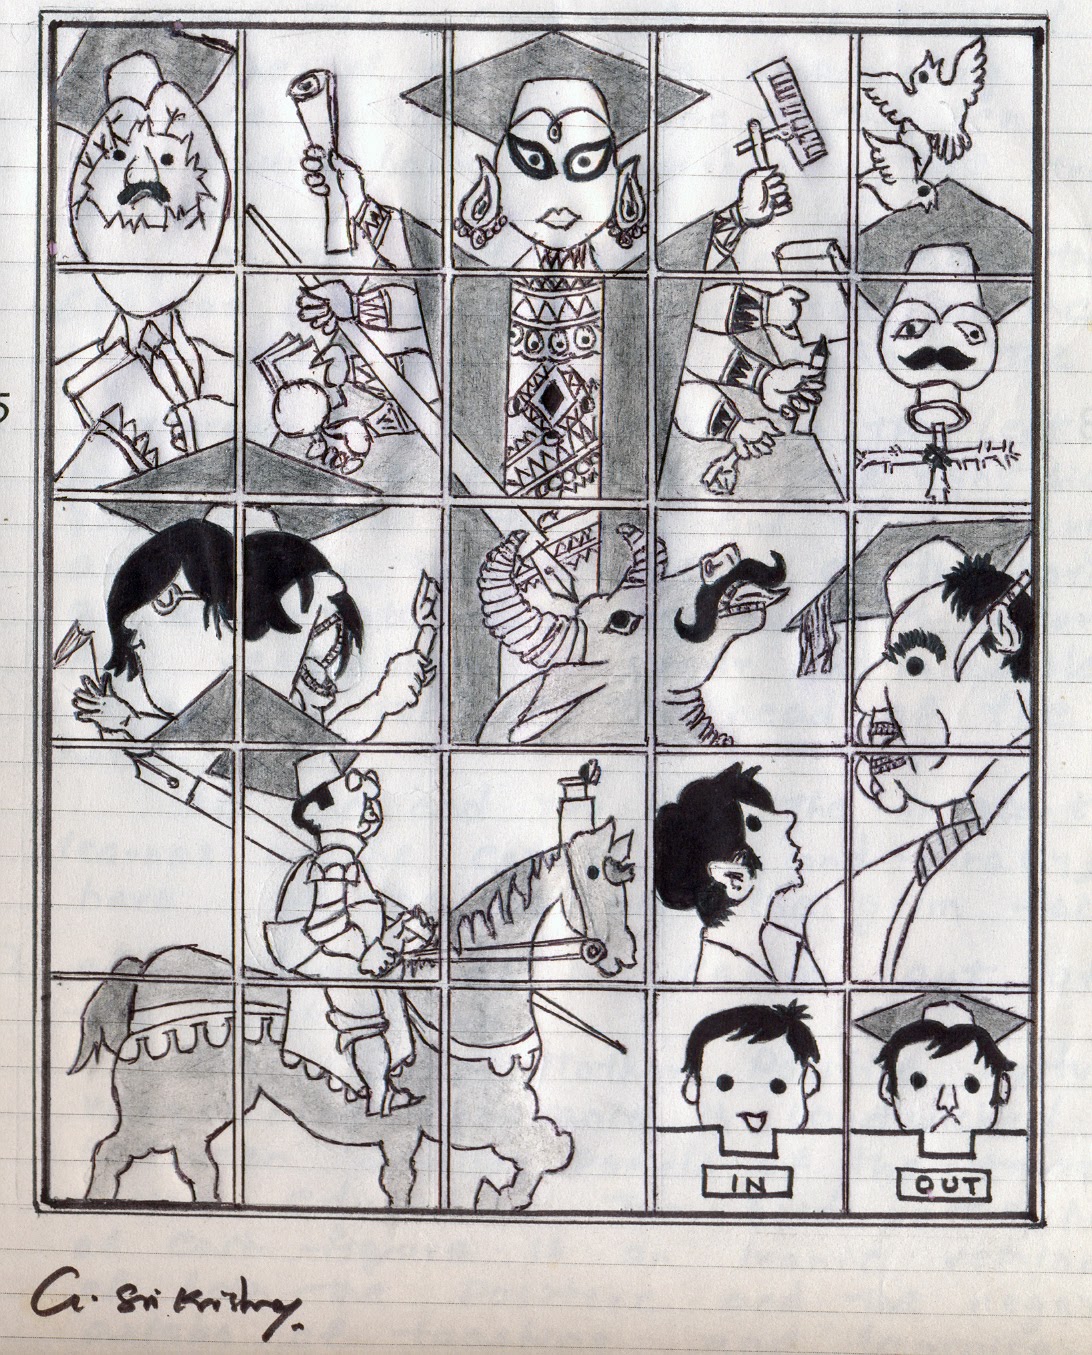 IN
OUT
G. Sri Krishna.
5